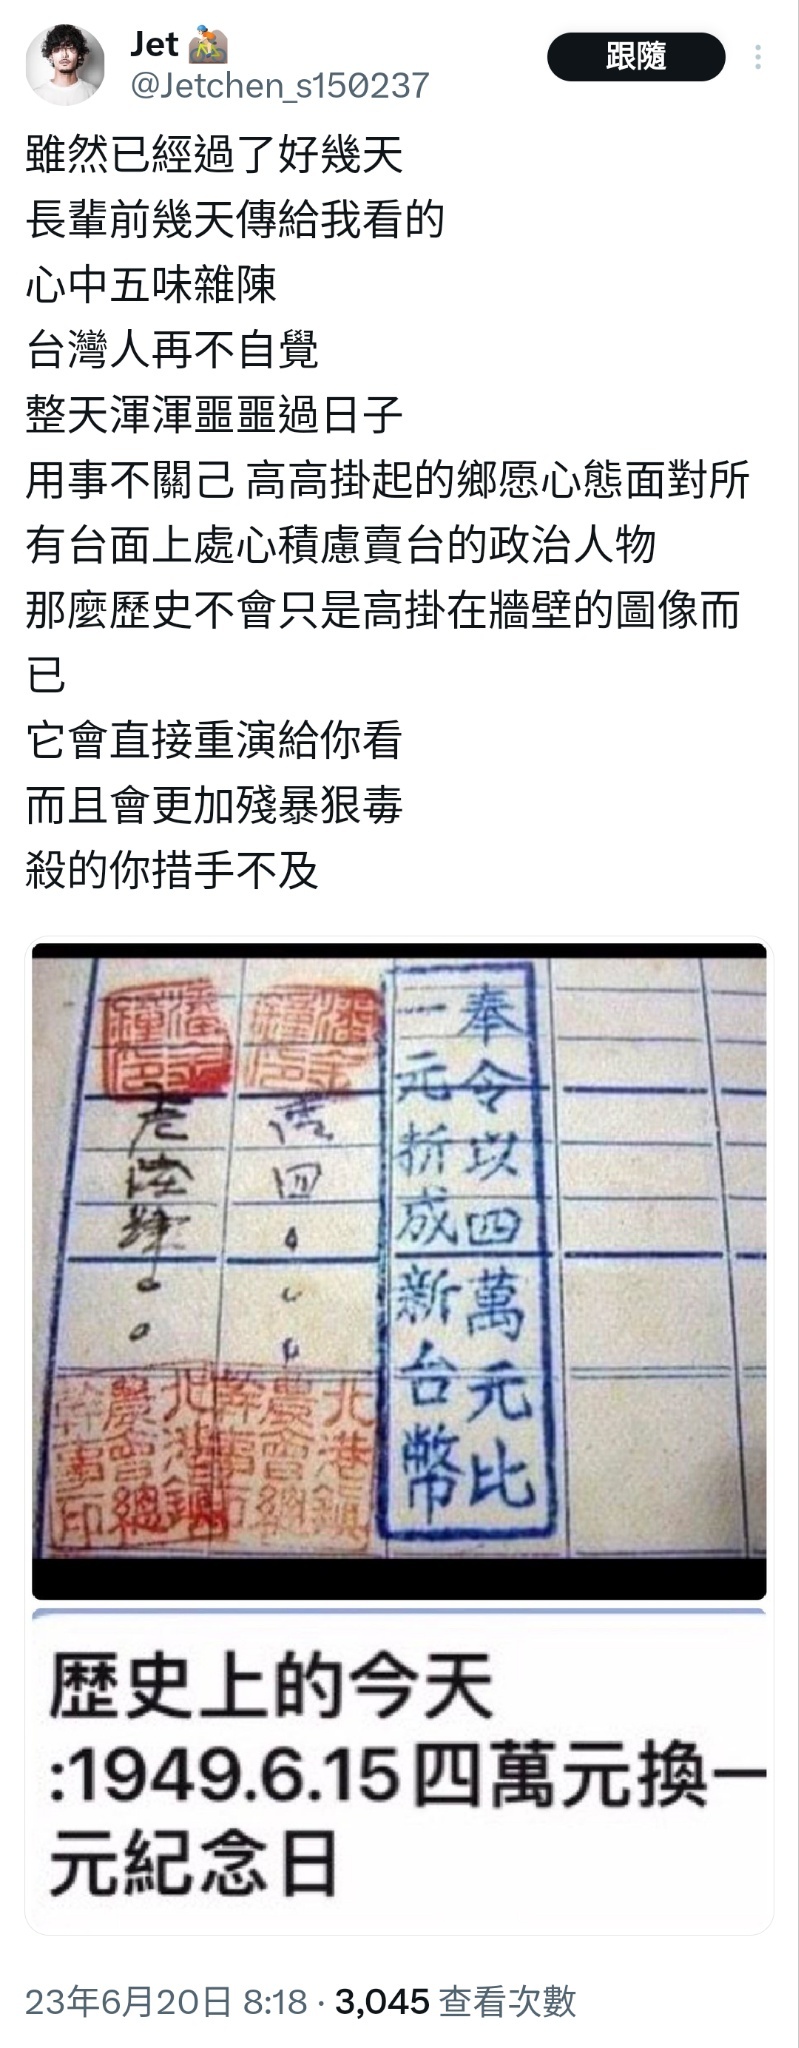 Jet
@Jetchen_s150237
跟隨
雖然已經過了好幾天
長輩前幾天傳給我看的
心中五味雜陳
台灣人再不自覺
整天渾渾噩噩過日子
用事不關己 高高掛起的鄉愿心態面對所
有台面上處心積慮賣台的政治人物
那麼歷史不會只是高掛在牆壁的圖像而
已
它會直接重演給你看
而且會更加殘暴狠毒
殺的你措手不及
奉令以四萬元比
一元折成新台幣
北港鎮
農會總
幹事印
北港鎮
農會總
幹事印
歷史上的今天
:1949.6.15四萬元換一
元紀念日
23年6月20日 8:18 · 3,045 查看次數